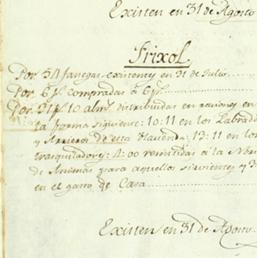 Existen en 31 de Agosto
Frixol
Por 54 fanegas existentes en 31 de Julio
Por 6 f. compradas à 6 p.
Por 21 f. 10 alm. distribuidas en raciones en
la forma siguiente: 10: 11 en los Labrad
y Arrieros de esta Hacienda: 13: 11 en los
trasquiladores: 1: 00 remitidas à la
de Animas para aquellos sirvientes y 3
en el gasto de Casa
Existen en 31 de Agosto